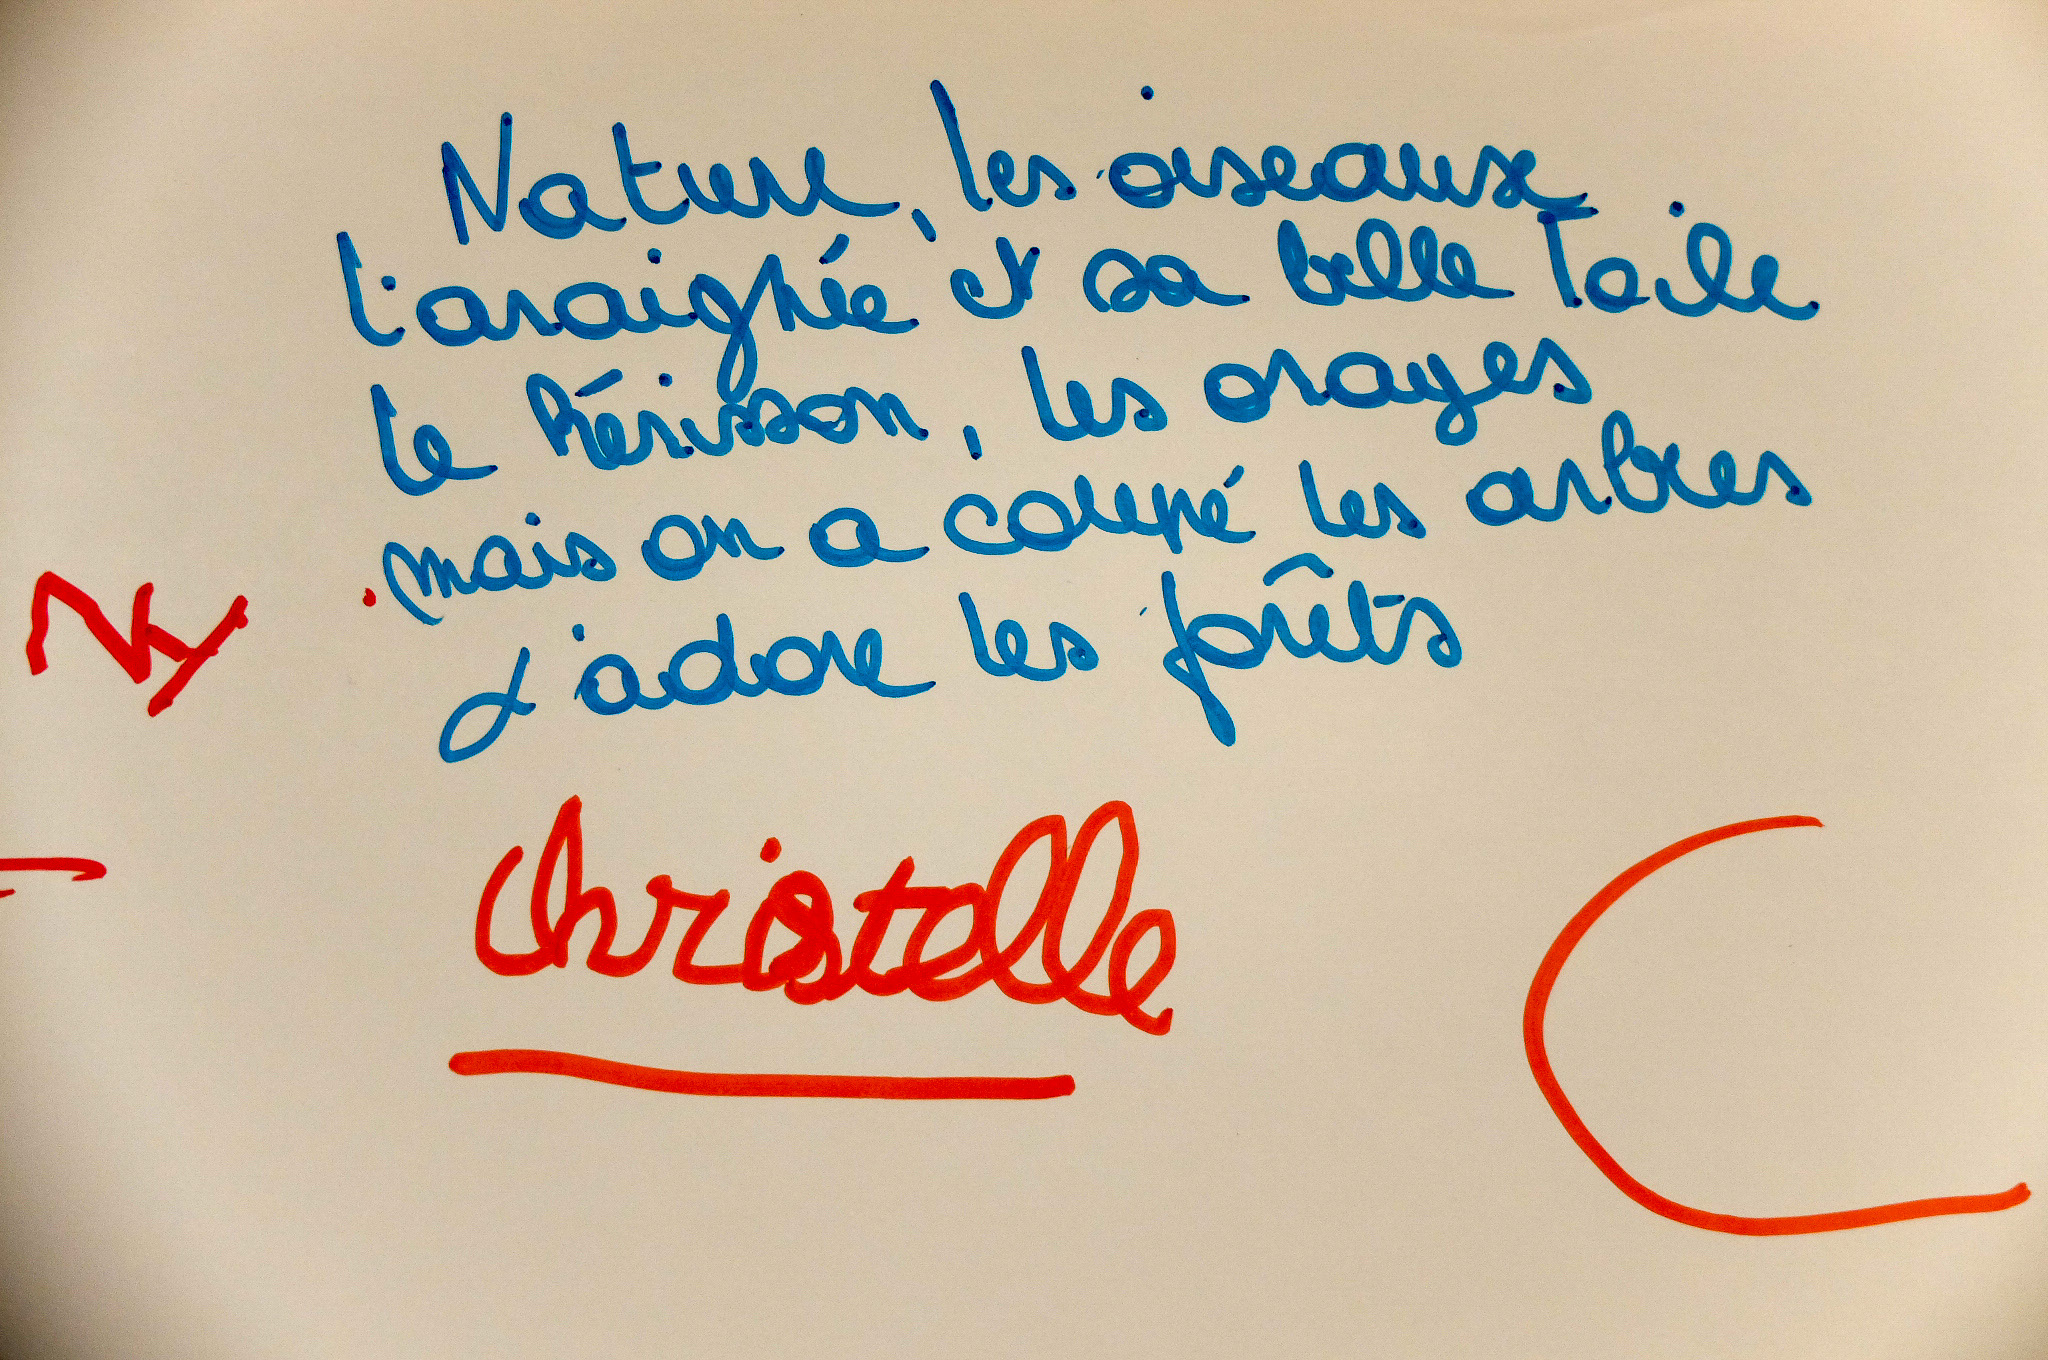 Nature, les oiseaux
l'araignée et sa belle Toile
le hérisson, les orages
mais on a coupé les arbres
J'adore les forêts
Christelle